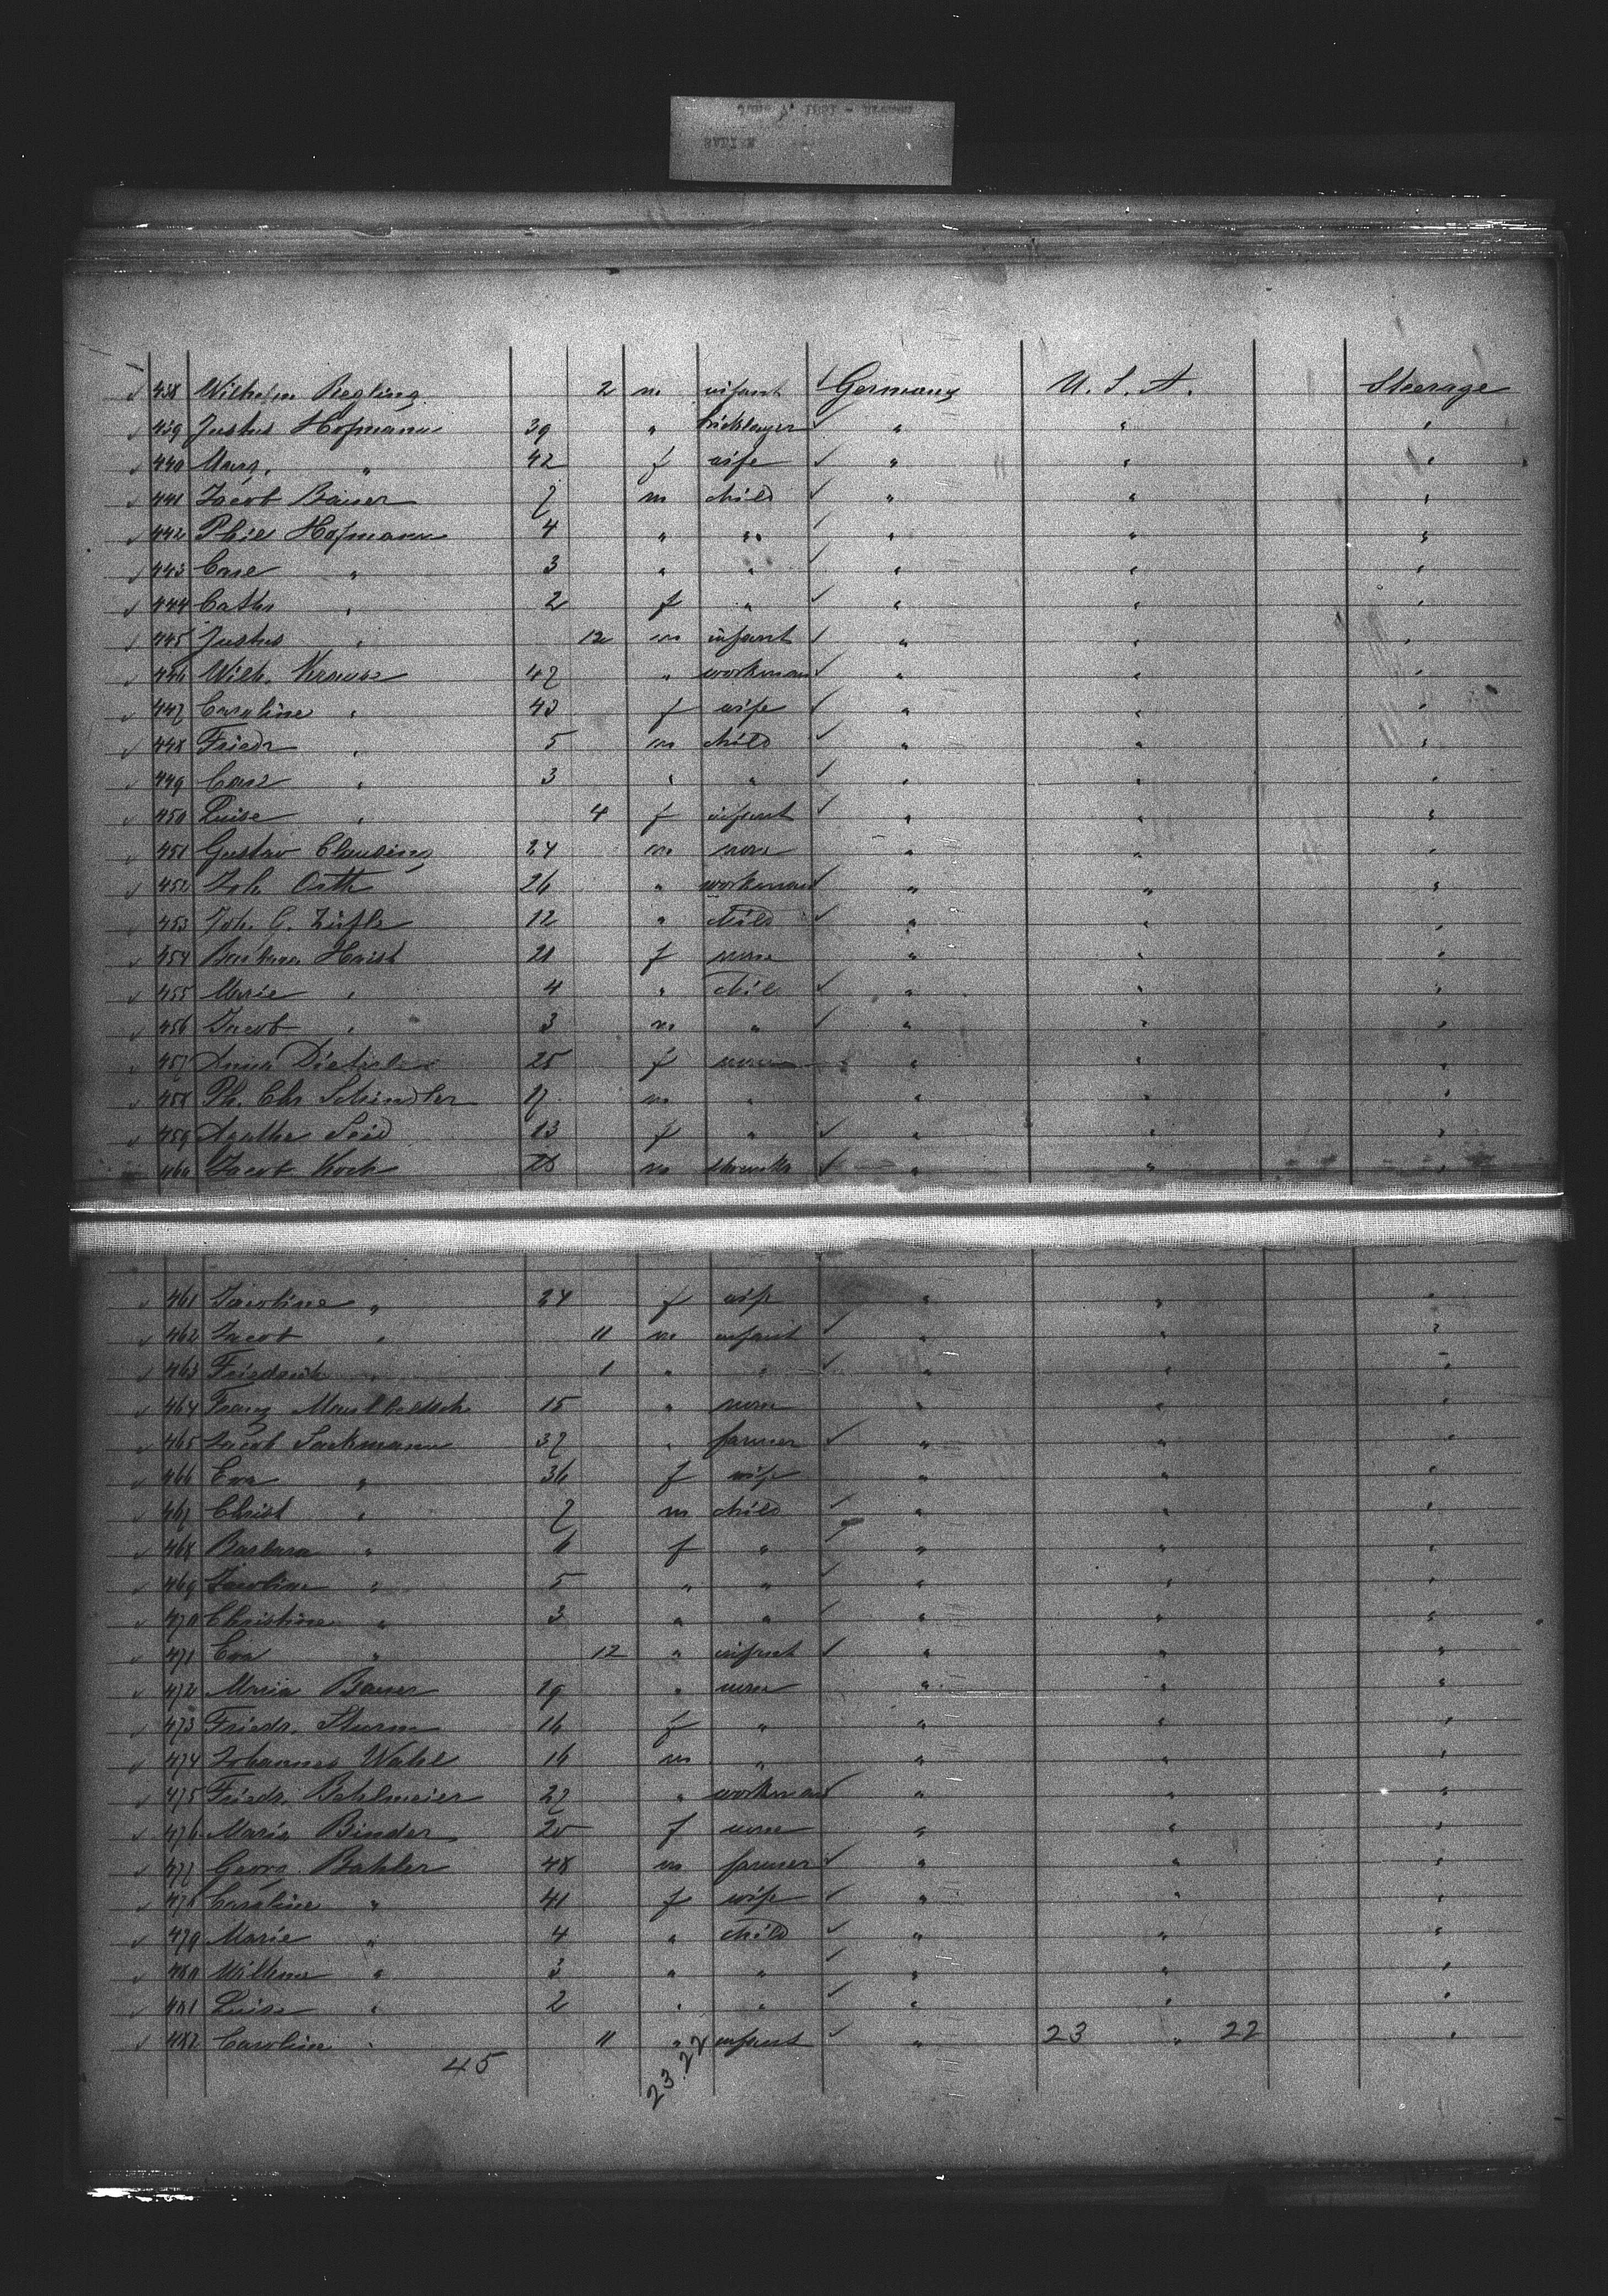 438 Wilhelm Regling 2 m infant ✓ Germany U. S. A. Steerage
439 Justus Hofmann 39 " bricklayer ✓ " " "
440 Marg. " 42 f wife ✓ " " "
441 Jacob Bauer 7 m child ✓ " " "
442 Phil Hofmann 4 " " ✓ " " "
443 Carl " 3 " " ✓ " " "
444 Cathr " 2 f " ✓ " " "
445 Justus " 12 m infant ✓ " " "
446 Wilh. 47 " workman ✓ " " "
447 Caroline " 43 f wife ✓ " " "
448 Friedr " 5 m child ✓ " " "
449 Carl " 3 " " ✓ " " "
450 Luise " 4 f infant ✓ " " "
451 Gustav Clausing 24 m none " " "
452 Joh. Orth 26 " workman ✓ " " "
453 Joh. G. 12 " child ✓ " " "
454 Barbara Haist 21 f none " " "
455 Marie " 4 " chil ✓ " " "
456 Jacob " 3 m " ✓ " " "
457 Anna 25 f none " " "
458 Ph. Chr. Schindler 17 m " " " "
459 Agathe Seid 13 f " ✓ " " "
460 Jacob Koch m ✓ " " "
461 Jacobine " 24 f wife " " "
462 Jacob " 11 m infant ✓ " " "
463 Friedrich " 1 " " ✓ " " "
464 Franz 15 " none " " "
465 Jacob Sackmann 37 " farmer ✓ " " "
466 Eva " 36 f wife " " "
467 Christ " 7 m child ✓ " " "
468 Barbara " 6 f " ✓ " " "
469 Jacobine " 5 " " ✓ " " "
470 Christine " 3 " " ✓ " " "
471 Eva " 12 " infant ✓ " " "
472 Maria Bauer 19 " none " " "
473 Friedr. Sturm 16 f " " " "
474 Johannes Wahl 16 m " " " "
475 Friedr. Pohlmeier 27 " workman ✓ " " "
476 Maria Binder 20 f none " " "
477 Georg Bahler 48 m farmer ✓ " " "
478 Caroline " 41 f wife ✓ " " "
479 Marie " 4 " child ✓ " " "
480 " 3 " " ✓ " " "
481 Luise " 2 " " ✓ " " "
482 Caroline " 11 " infant ✓ " 23 " 22 "
45
23.22